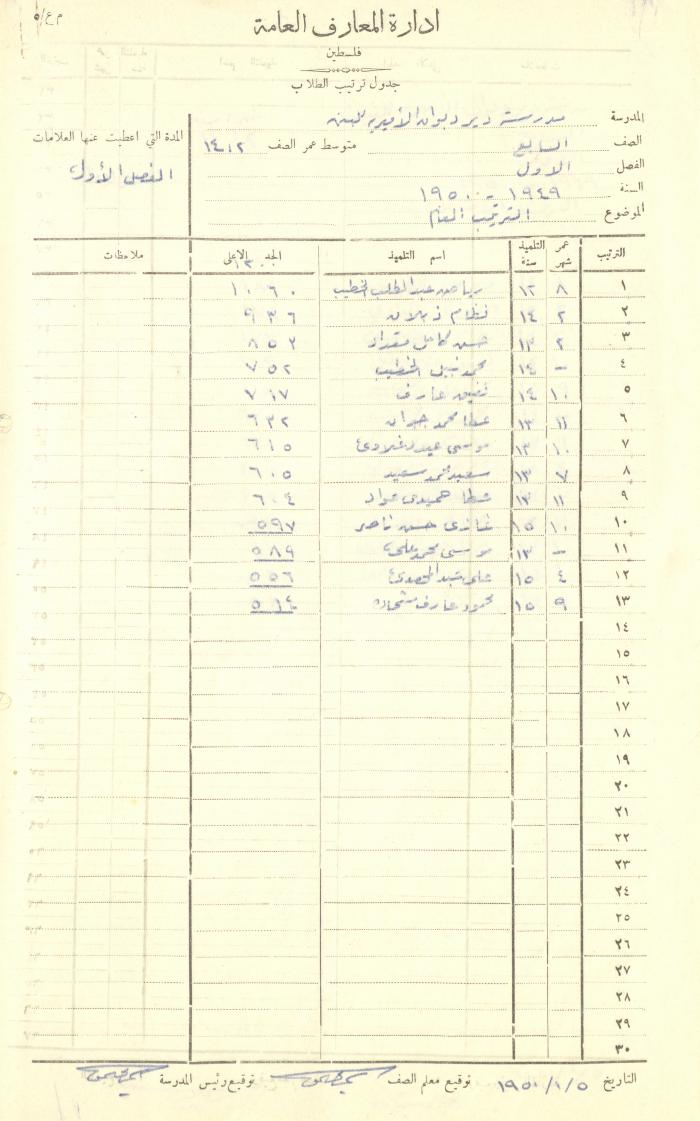 م ع/٥
ادارة المعارف العامة
فلسطين
جدول ترتيب الطلاب
المدرسة مدرسة دير دبوان الأميرية للبنين
الصف السابع متوسط عمر الصف ١٤،٢
الفصل الاول
السنة ١٩٤٩ - ١٩٥٠
الموضوع الترتيب العام
المدة التي اعطيت عنها العلامات
الفصل الأول
الترتيب عمر التلميذ شهر سنة اسم التلميذ الحد الاعلى ١٣٠٠ ملاحظات
١ ٨ ١٢ رياض عبد المطلب الخطيب ١٠٦٠
٢ ٢ ١٤ نظام ٩٣٦
٣ ٢ ١٣ حسن كامل مقداد ٨٥٢
٤ - ١٤ محمد نبيل الخطيب ٧٥٢
٥ ١٠ ١٤ عارف ٧١٧
٦ ١١ ١٣ عطا محمد جبران ٦٣٢
٧ ١٠ ١٣ موسى عيد ٦١٥
٨ ٧ ١٣ سعيد محمد سعيد ٦٠٥
٩ ١١ ١٣ عطا حميدي عواد ٦٠٤
١٠ ١٠ ١٥ غازي حسن ناصر ٥٩٧
١١ - ١٣ موسى محمد علي ٥٨٩
١٢ ٤ ١٥ علي ٥٥٦
١٣ ٩ ١٥ محمود عارف شحاده ٥١٤
١٤
١٥
١٦
١٧
١٨
١٩
٢٠
٢١
٢٢
٢٣
٢٤
٢٥
٢٦
٢٧
٢٨
٢٩
٣٠
التاريخ ١٩٥٠/١/٥ توقيع معلم الصف توقيع رئيس المدرسة